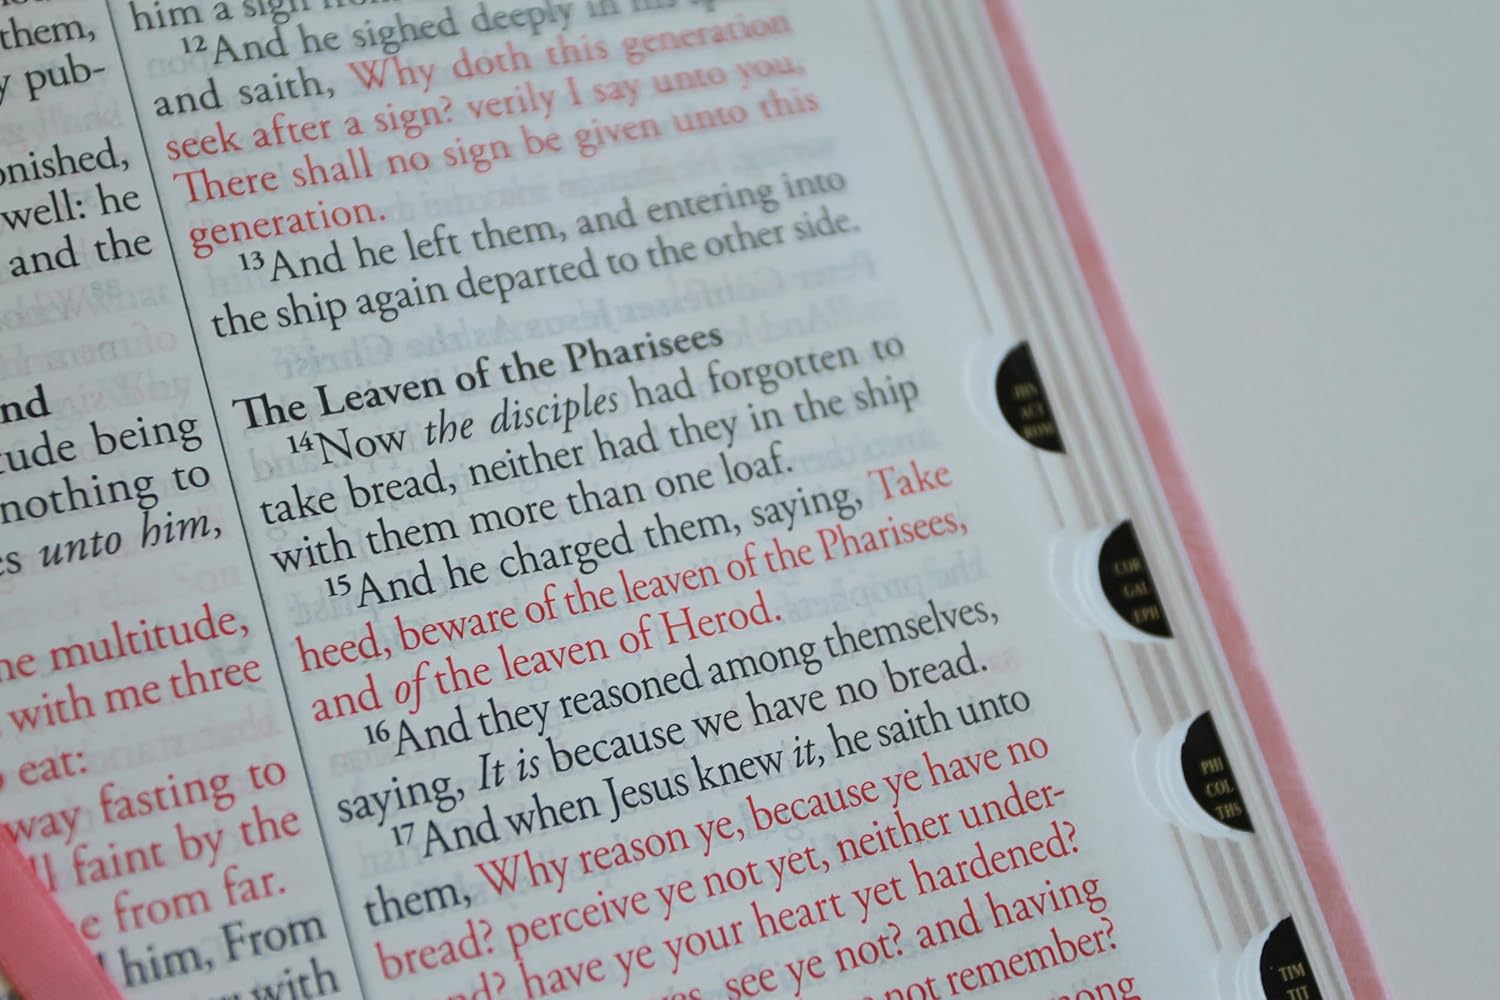 them,
pub-
onished,
well: he
and the
nd
tude being
nothing to
unto him,
multitude,
with me three
eat:
way fasting to
faint by the
from far.
him, From
with
him a sign
12 And he sighed deeply in his
and saith, Why doth this generation
seek after a sign? verily I say unto you,
There shall no sign be given unto this
generation.
13 And he left them, and entering into
the ship again departed to the other side.
The Leaven of the Pharisees
14 Now the disciples had forgotten to
take bread, neither had they in the ship
with them more than one loaf.
15 And he charged them, saying, Take
heed, beware of the leaven of the Pharisees,
and of the leaven of Herod.
16 And they reasoned among themselves,
saying, It is because we have no bread.
17 And when Jesus knew it, he saith unto
them, Why reason ye, because ye have no
bread? perceive ye not yet, neither under-
have ye your heart yet hardened?
see ye not? and having
not remember?
ACT
ROM
COR
GAL
EPH
PHI
COL
THS
TIM
TIT